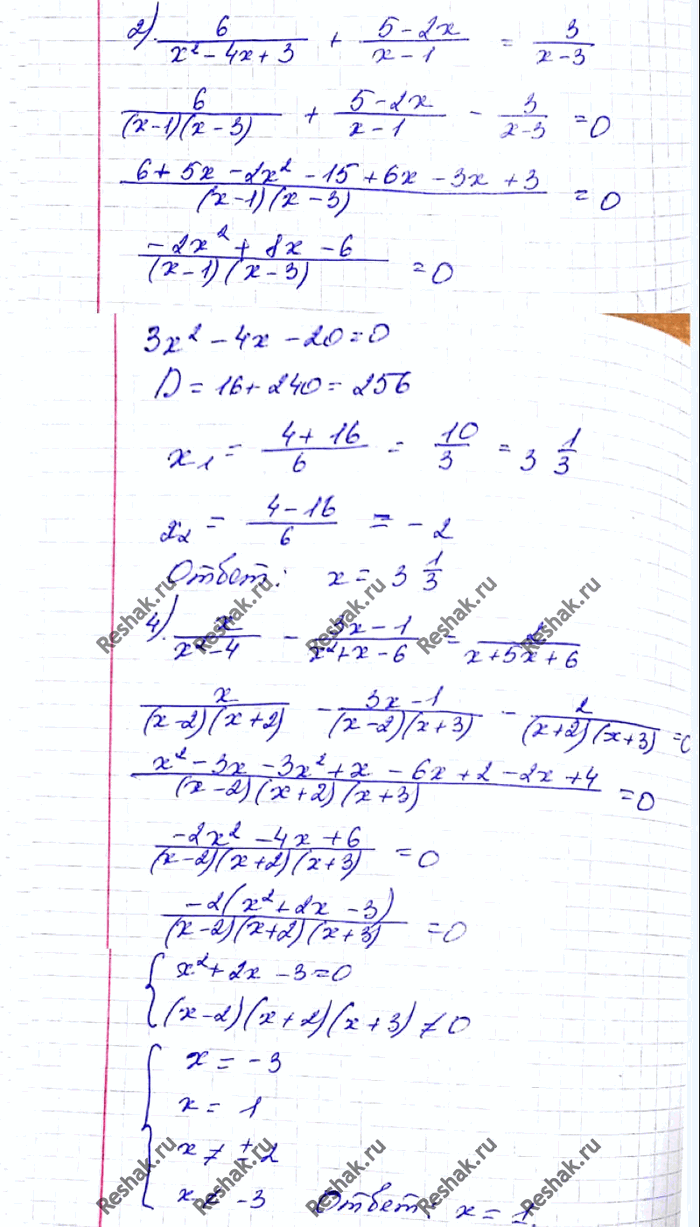 2). 6/(x² - 4x + 3) + (5 - 2x)/(x - 1) = 3/(x - 3)
6/((x-1)(x-3)) + (5 - 2x)/(x - 1) - 3/(x-3) = 0
(6 + 5x - 2x² - 15 + 6x - 3x + 3)/((x-1)(x-3)) = 0
(-2x² + 8x - 6)/((x-1)(x-3)) = 0
3x² - 4x - 20 = 0
D = 16 + 240 = 256
x₁ = (4 + 16)/6 = 10/3 = 3 1/3
x₂ = (4 - 16)/6 = -2
Ответ: x = 3 1/3
4). x/(x² - 4) - (3x - 1)/(x² + x - 6) = 2/(x + 5x + 6)
x/((x-2)(x+2)) - (3x - 1)/((x-2)(x+3)) - 2/((x+2)(x+3)) = 0
(x² - 3x - 3x² + x - 6x + 2 - 2x + 4)/((x-2)(x+2)(x+3)) = 0
(-2x² - 4x + 6)/((x-2)(x+2)(x+3)) = 0
-2(x² + 2x - 3)/((x-2)(x+2)(x+3)) = 0
x² + 2x - 3 = 0
(x-2)(x+2)(x+3) ≠ 0
x = -3
x = 1
x ≠ ±2
x ≠ -3 Ответ: x = 1.
Reshak.ru
Reshak.ru
Reshak.ru
Reshak.ru
Reshak.ru
Reshak.ru
Reshak.ru
Reshak.ru